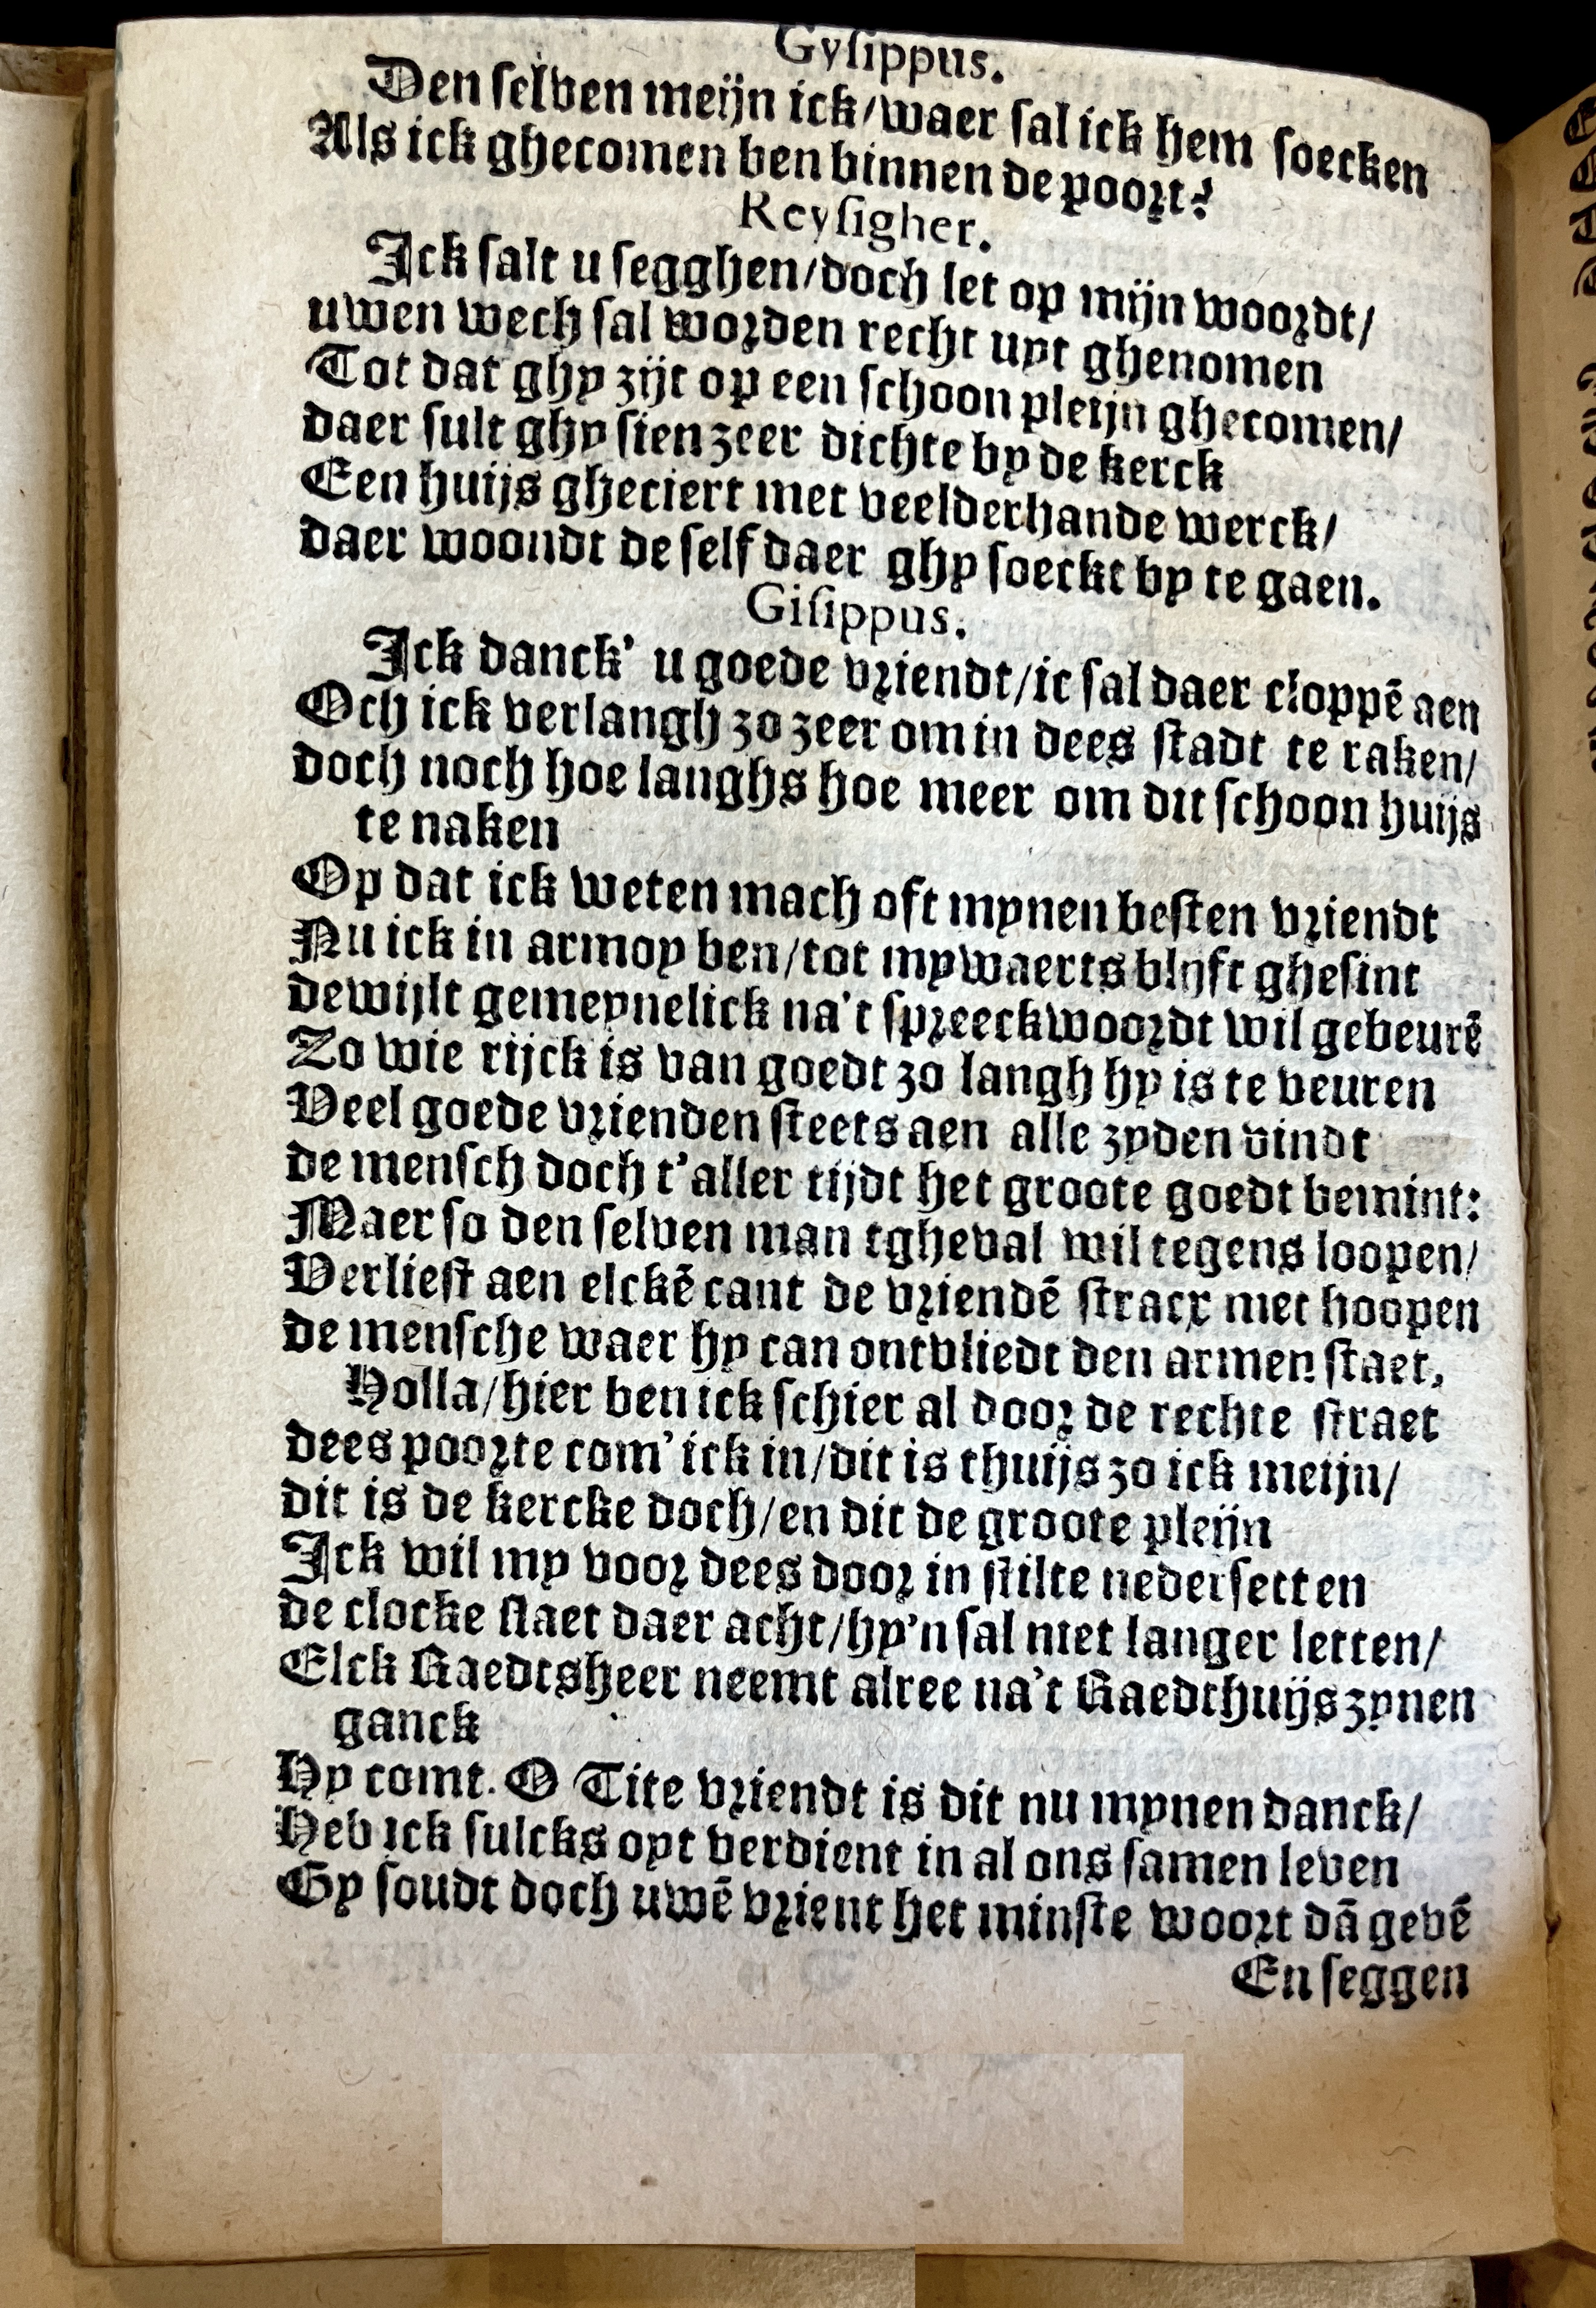 Gyſippus.
Den ſelven meijn ick/waer ſal ick hem ſoecken
Als ick ghecomen ben binnen de poort?
Reyſigher.
Ick ſalt u ſegghen/doch let op mijn woordt/
uwen wech ſal worden recht uyt ghenomen
Tot dat ghy zijt op een ſchoon pleijn ghecomen/
daer ſult ghy ſien zeer dichte by de kerck
Een huijs gheciert met veelderhande werck/
daer woondt de ſelf daer ghy ſoeckt by te gaen.
Giſippus.
Ick danck' u goede vriendt/ic ſal daer cloppē aen
Och ick verlangh zo zeer om in dees ſtadt te raken/
doch noch hoe langhs hoe meer om dit ſchoon huijs
te naken
Op dat ick weten mach oft mynen beſten vriendt
Nu ick in armoy ben/tot mywaerts blijft gheſint
dewijlt gemeynelick na't ſpreeckwoordt wil gebeurē
Zo wie rijck is van goedt zo langh hy is te veuren
Veel goede vrienden ſteets aen alle zyden vindt
de menſch doch t'aller tijdt het groote goedt bemint:
Maer ſo den ſelven man tgheval wil tegens loopen/
Verlieſt aen elckē cant de vriendē ſtracx met hoopen
de menſche waer hy can ontvliedt den armen ſtaet,
Holla/hier ben ick ſchier al door de rechte ſtraet
dees poorte com' ick in/dit is thuijs zo ick meijn/
dit is de kercke doch/en dit de groote pleijn
Ick wil my voor dees door in ſtilte nederſetten
de clocke ſlaet daer acht/hy'n ſal niet langer letten/
Elck Raedtsheer neemt alree na't Raedthuijs zynen
ganck
Hy comt. O Tite vriendt is dit nu mynen danck/
Heb ick ſulcks oyt verdient in al ons ſamen leven
Gy ſoudt doch uwē vrient het minſte woort dā gevē
En ſeggen